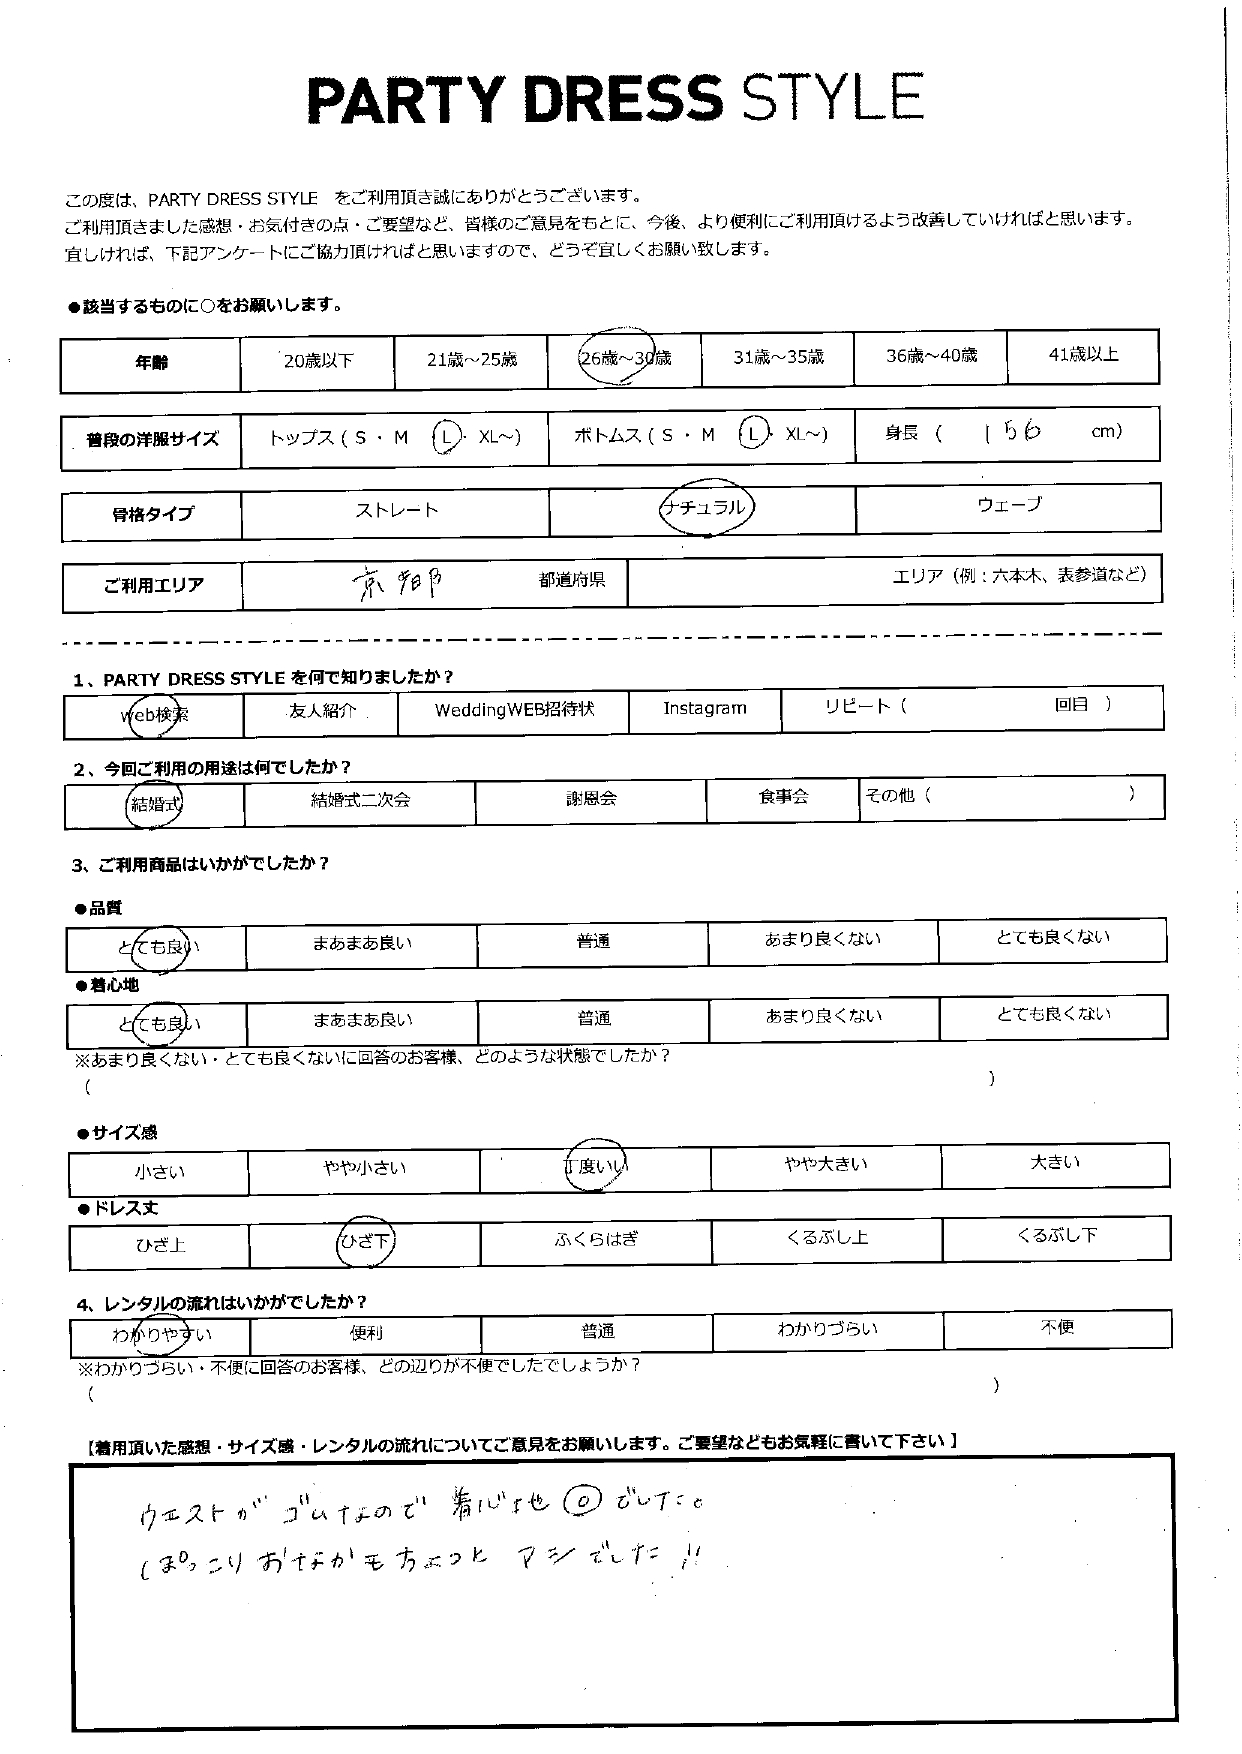 PARTY DRESS STYLE
この度は、PARTY DRESS STYLE をご利用頂き誠にありがとうございます。
ご利用頂きました感想・お気付きの点・ご要望など、皆様のご意見をもとに、今後、より便利にご利用頂けるよう改善していければと思います。
宜しければ、下記アンケートにご協力頂ければと思いますので、どうぞ宜しくお願い致します。
●該当するものに○をお願いします。
年齢 20歳以下 21歳～25歳 26歳～30歳 31歳～35歳 36歳～40歳 41歳以上
普段の洋服サイズ トップス ( S ・ M L ・ XL～) ボトムス ( S ・ M L ・ XL～) 身長 ( 156 cm)
骨格タイプ ストレート ナチュラル ウェーブ
ご利用エリア 京都 都道府県 エリア（例：六本木、表参道など）
1、PARTY DRESS STYLE を何で知りましたか？
web検索 友人紹介 WeddingWEB招待状 Instagram リピート（ 回目 ）
2、今回ご利用の用途は何でしたか？
結婚式 結婚式二次会 謝恩会 食事会 その他（ ）
3、ご利用商品はいかがでしたか？
●品質
とても良い まあまあ良い 普通 あまり良くない とても良くない
●着心地
とても良い まあまあ良い 普通 あまり良くない とても良くない
※あまり良くない・とても良くないに回答のお客様、どのような状態でしたか？
（ ）
●サイズ感
小さい やや小さい 丁度いい やや大きい 大きい
●ドレス丈
ひざ上 ひざ下 ふくらはぎ くるぶし上 くるぶし下
4、レンタルの流れはいかがでしたか？
わかりやすい 便利 普通 わかりづらい 不便
※わかりづらい・不便に回答のお客様、どの辺りが不便でしたでしょうか？
（ ）
【着用頂いた感想・サイズ感・レンタルの流れについてご意見をお願いします。ご要望などもお気軽に書いて下さい】
ウエストが ゴムなので 着心地◎でした。
ぽっこりおなかもちょっと マシでした!!